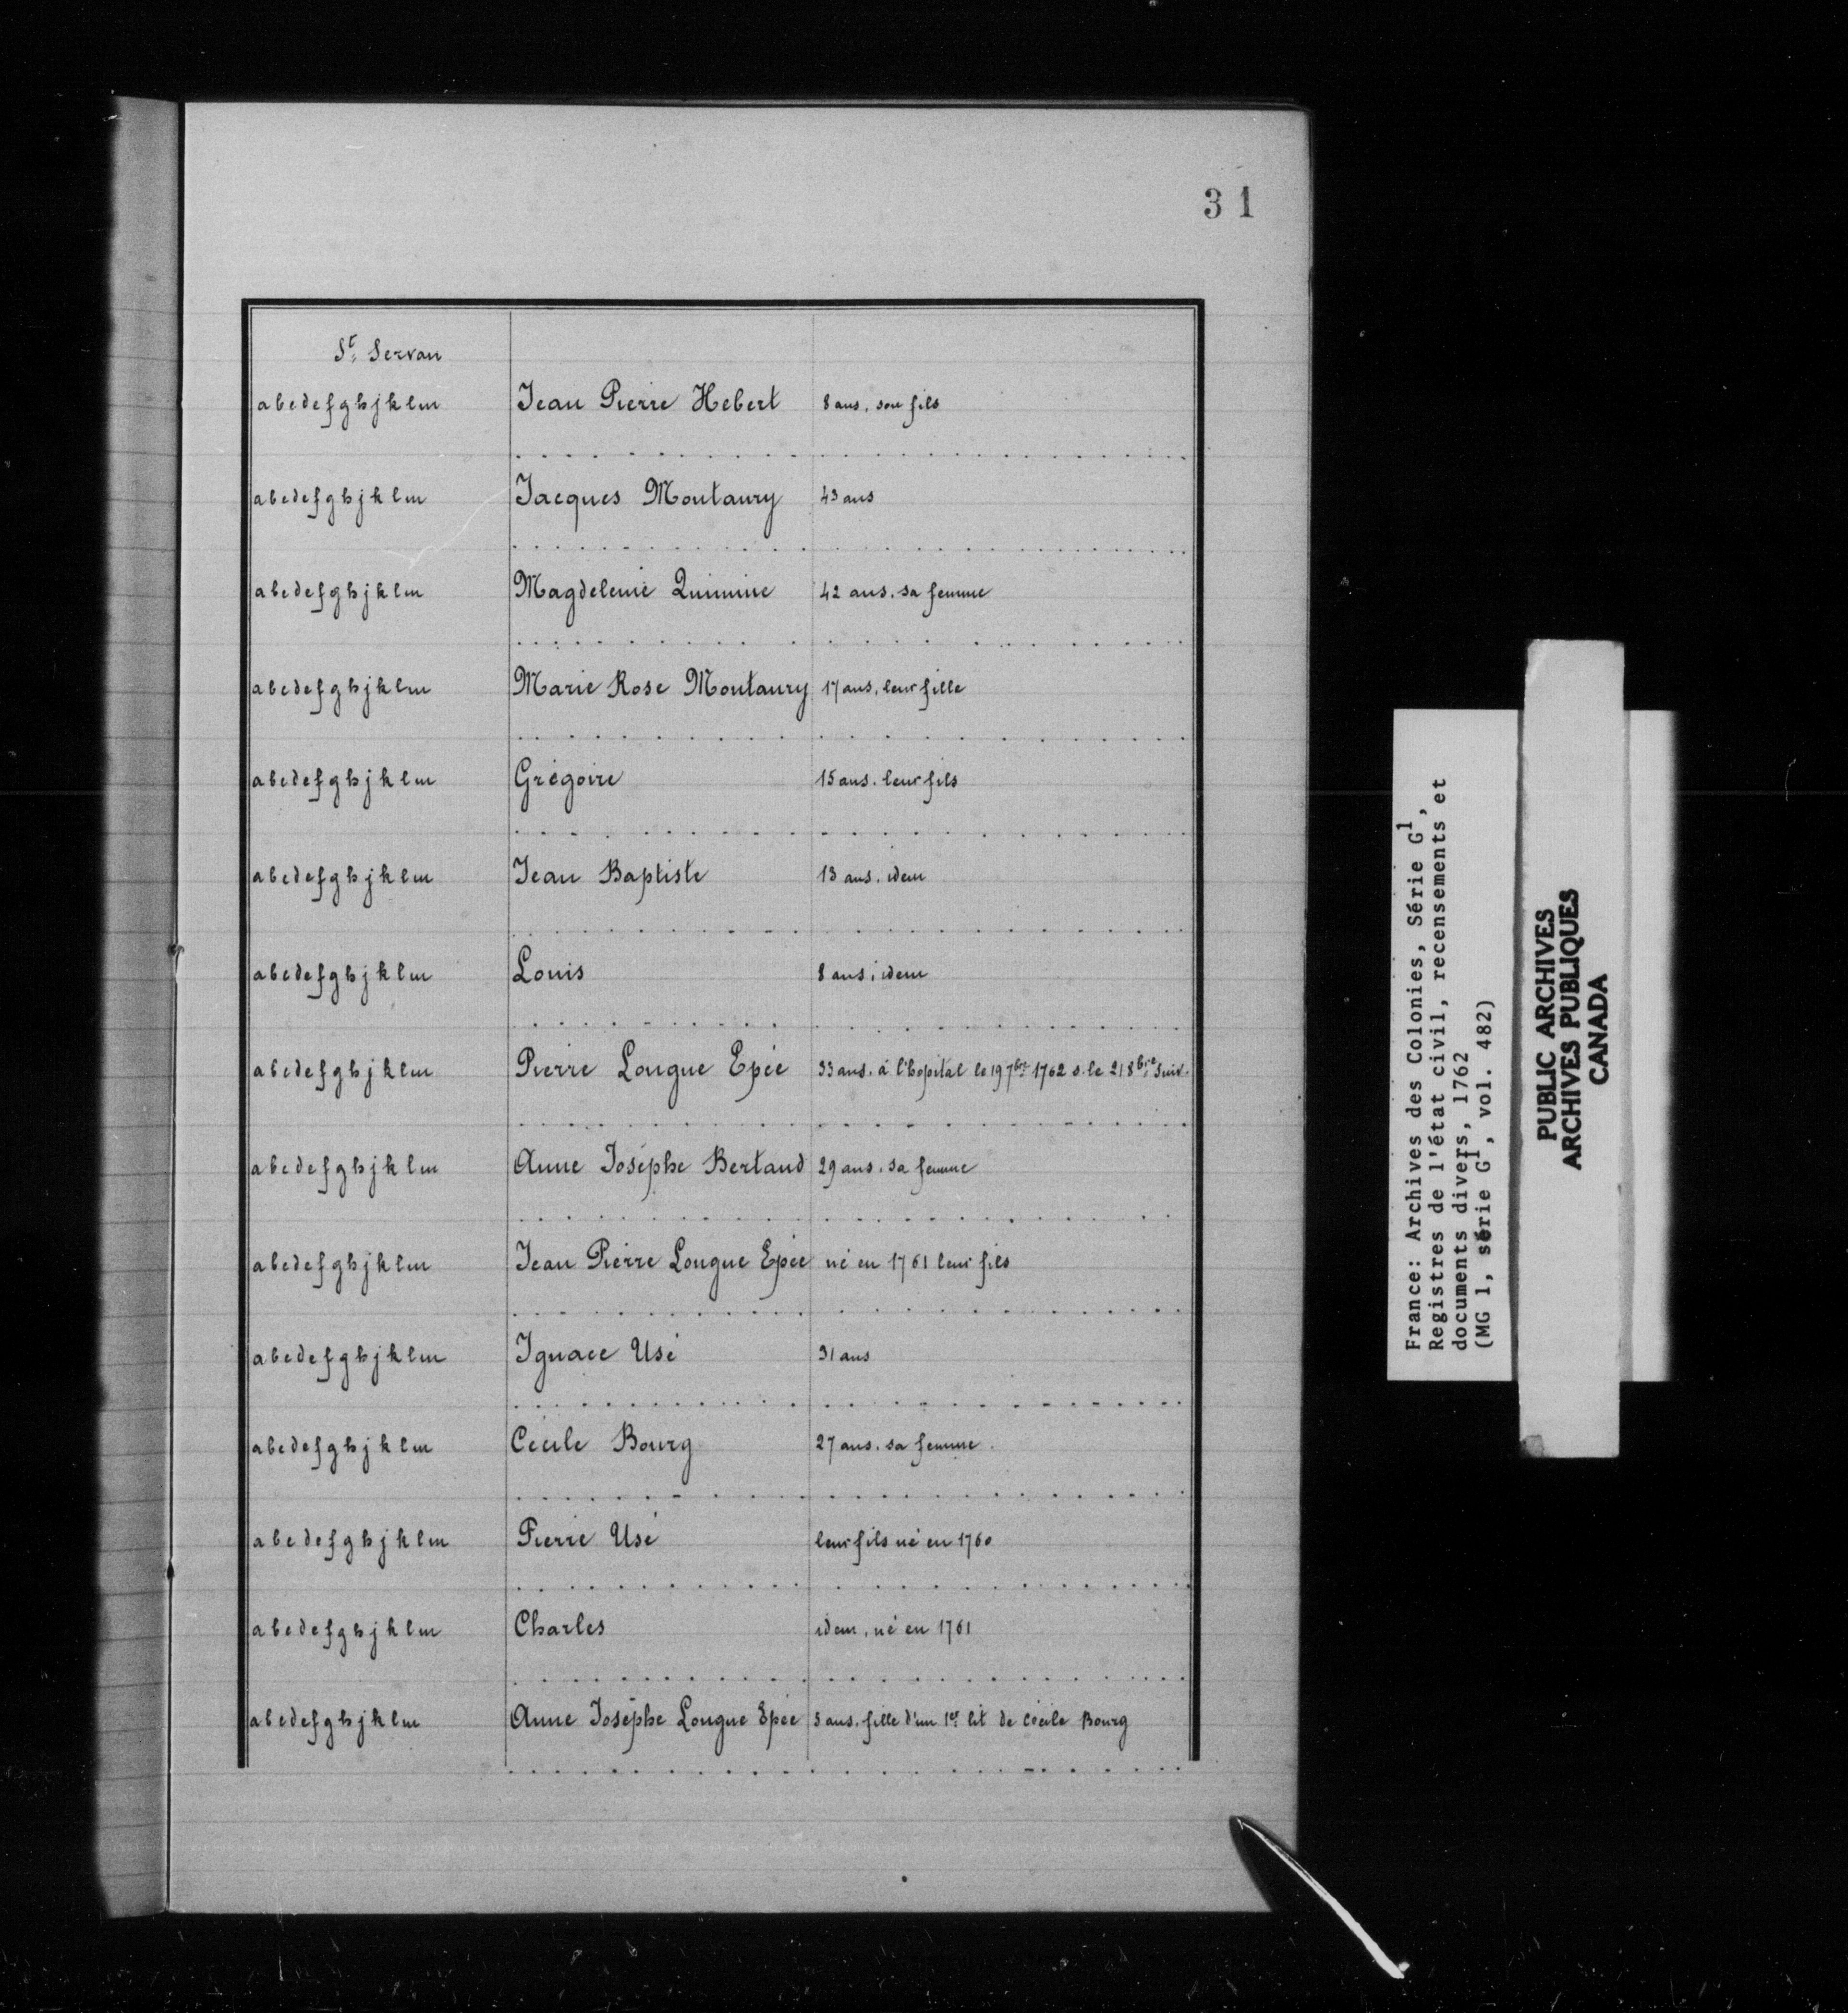 31
St. Servan
abcdefghjklm Jean Pierre Hebert 8 ans, son fils
abcdefghjklm Jacques Montaury 43 ans
abcdefghjklm Magdeleine Quimine 42 ans, sa femme
abcdefghjklm Marie Rose Montaury 17 ans, leur fille
abcdefghjklm Grégoire 15 ans, leur fils
abcdefghjklm Jean Baptiste 13 ans, idem
abcdefghjklm Louis 8 ans, idem
abcdefghjklm Pierre Longue Epée 33 ans, à l'hopital le 19 7bre 1762 s. le 21 8bre suiv.
abcdefghjklm Anne Josephe Bertaud 29 ans, sa femme
abcdefghjklm Jean Pierre Longue Epée né en 1761 leur fils
abcdefghjklm Ignace Usé 31 ans
abcdefghjklm Cécile Bourg 27 ans, sa femme
abcdefghjklm Pierre Usé leur fils né en 1760
abcdefghjklm Charles idem, né en 1761
abcdefghjklm Anne Josephe Longue Epée 5 ans, fille d'un 1er lit de Cécile Bourg
France: Archives des Colonies, Série G1,
Registres de l'état civil, recensements et
documents divers, 1762
(MG 1, série G1, vol. 482)
PUBLIC ARCHIVES
ARCHIVES PUBLIQUES
CANADA